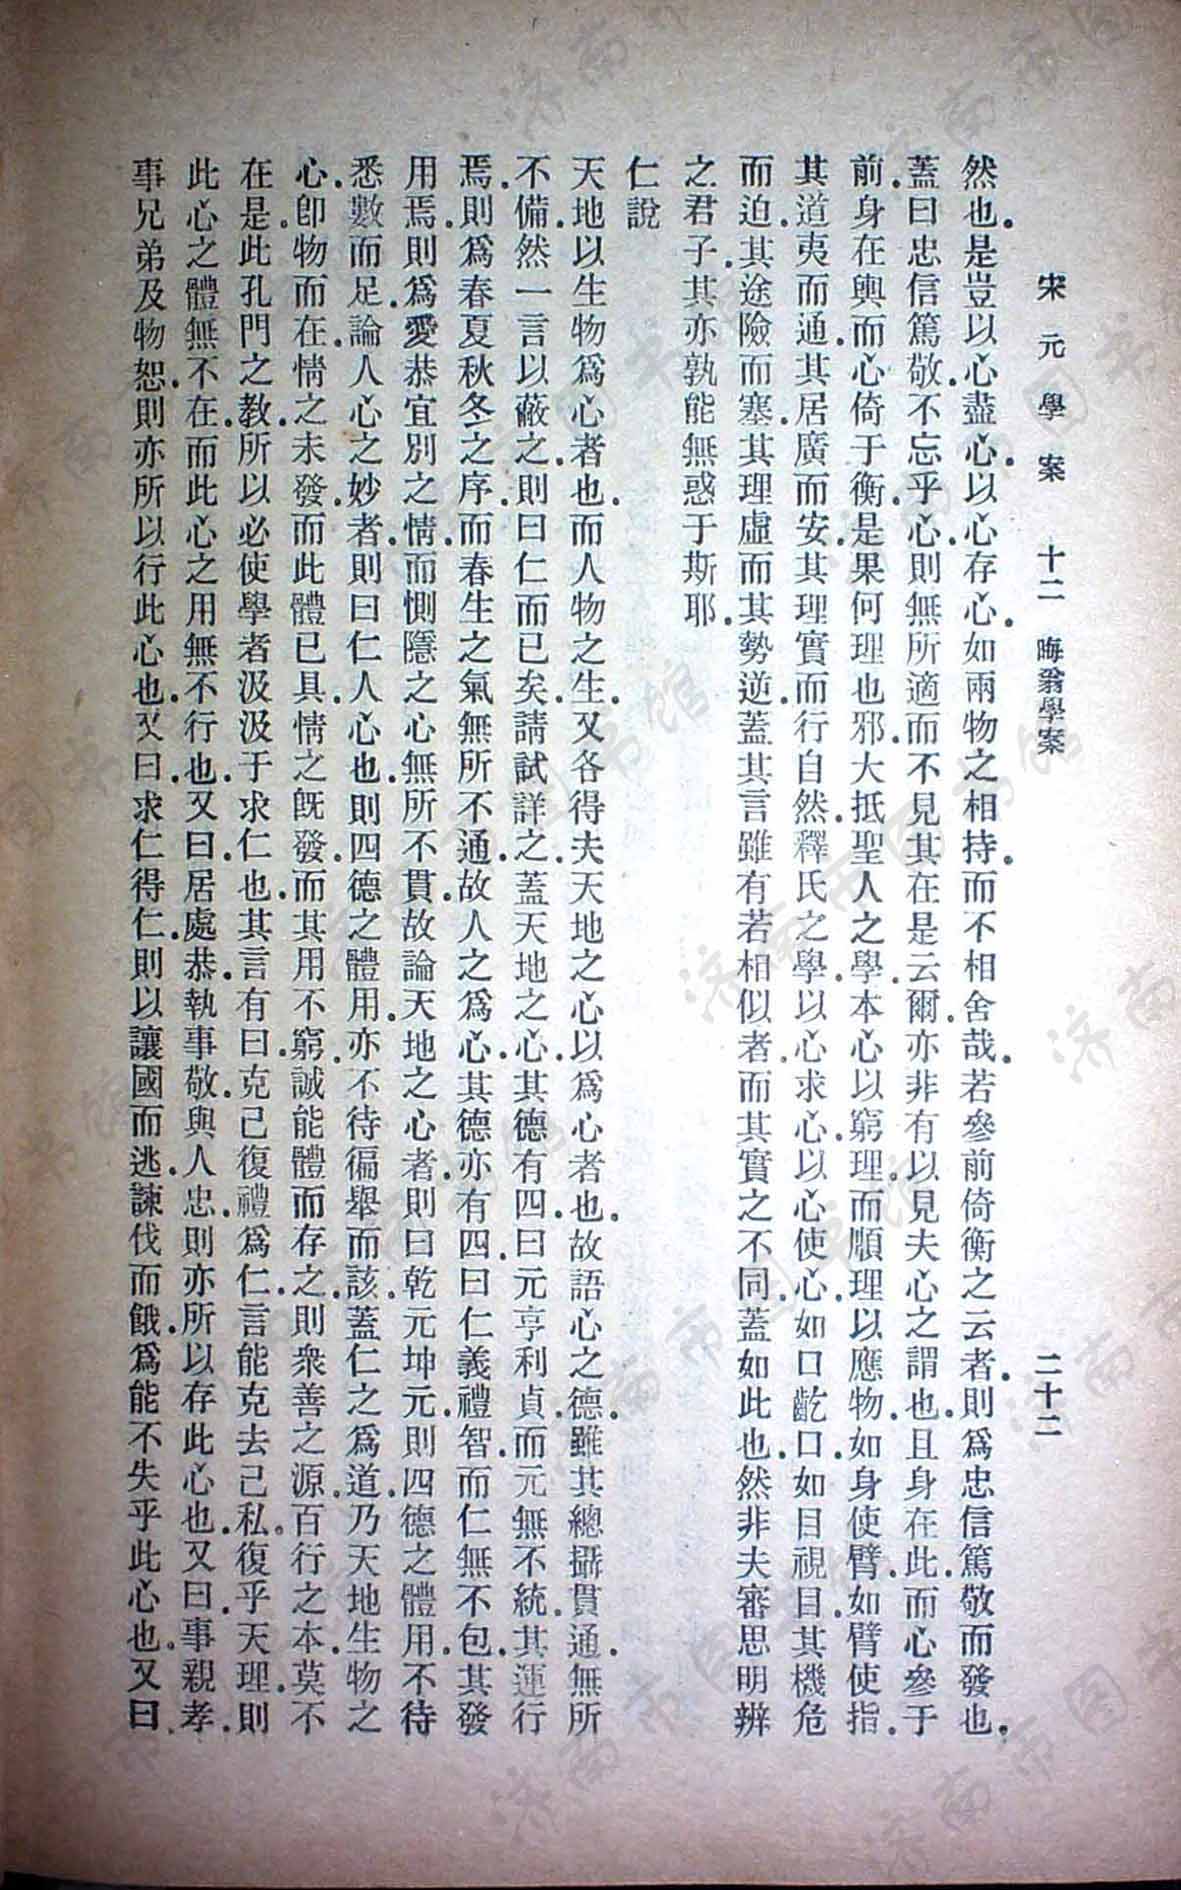 宋元學案 十二 晦翁學案 二十二
然也是豈以心盡心以心存心如兩物之相持而不相舍哉若參前倚衡之云者則爲忠信篤敬而發也
蓋曰忠信篤敬不忘乎心則無所適而不見其在是云爾亦非有以見夫心之謂也且身在此而心參于
前身在輿而心倚于衡是果何理也邪大抵聖人之學本心以窮理而順理以應物如身使臂如臂使指
其道夷而通其居廣而安其理實而行自然釋氏之學以心求心以心使心如口齕口如目視目其機危
而迫其途險而塞其理虛而其勢逆蓋其言雖有若相似者而其實之不同蓋如此也然非夫審思明辨
之君子其亦孰能無惑于斯耶
仁說
天地以生物爲心者也而人物之生又各得夫天地之心以爲心者也故語心之德雖其總攝貫通無所
不備然一言以蔽之則曰仁而已矣請試詳之蓋天地之心其德有四曰元亨利貞而元無不統其運行
焉則爲春夏秋冬之序而春生之氣無所不通故人之爲心其德亦有四曰仁義禮智而仁無不包其發
用焉則爲愛恭宜別之情而惻隱之心無所不貫故論天地之心者則曰乾元坤元則四德之體用不待
悉數而足論人心之妙者則曰仁人心也則四德之體用亦不待徧舉而該蓋仁之爲道乃天地生物之
心卽物而在情之未發而此體已具情之旣發而其用不窮誠能體而存之則衆善之源百行之本莫不
在是此孔門之教所以必使學者汲汲于求仁也其言有曰克己復禮爲仁言能克去己私復乎天理則
此心之體無不在而此心之用無不行也又曰居處恭執事敬與人忠則亦所以存此心也又曰事親孝
事兄弟及物恕則亦所以行此心也又曰求仁得仁則以讓國而逃諫伐而餓爲能不失乎此心也又曰